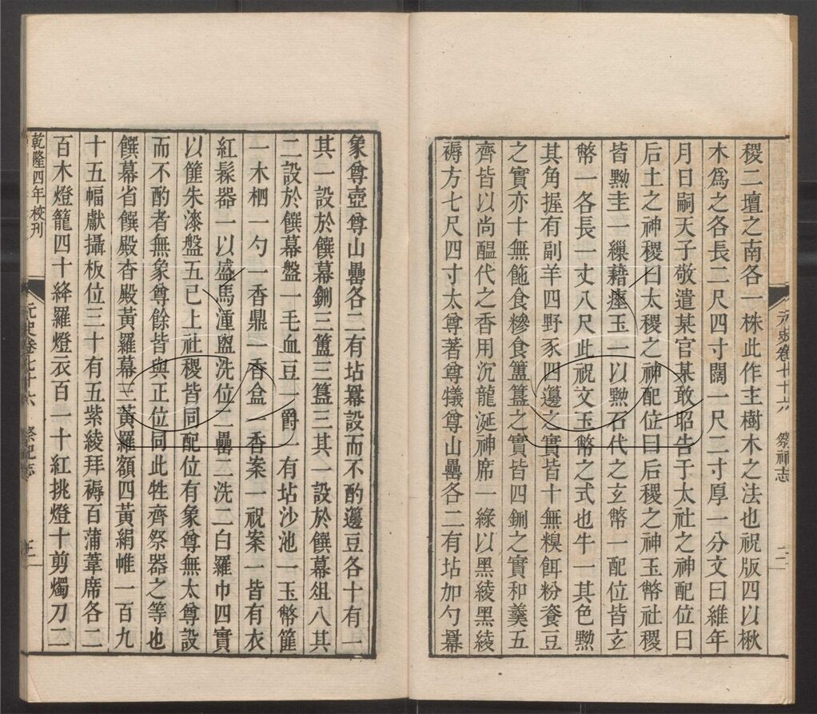 稷二壇之南各一株此作主樹木之法也祝版四以楸
木爲之各長二尺四寸闊一尺二寸厚一分文曰維年
月日嗣天子敬遣某官某敢昭告于太社之神配位曰
后土之神稷曰太稷之神配位曰后稷之神玉幣社稷
皆黝圭一繅藉瘞玉一以黝石代之玄幣一配位皆玄
幣一各長一丈八尺此祝文玉幣之式也牛一其色黝
其角握有副羊四野豕四籩之實皆十無糗餌粉餈豆
之實亦十無飽食糝食簠簋之實皆四鉶之實和羹五
齊皆以尚醞代之香用沉龍涎神席一緣以黑綾黑綾
褥方七尺四寸太尊著尊犧尊山罍各二有坫加勺羃
元史卷七十六
祭祀志
象尊壺尊山罍各二有坫羃設而不酌籩豆各十有一
其一設於饌幕鉶三簠三簋三其一設於饌幕俎八其
二設於饌幕盤一毛血豆一爵一有坫沙池一玉幣篚
一木柶一勺一香鼎一香盒一香案一祝案一皆有衣
紅髹器一以盛馬湩盥洗位二罍二洗二白羅巾四實
以篚朱漆盤五已上社稷皆同配位有象尊無太尊設
而不酌者無象尊餘皆與正位同此牲齊祭器之等也
饌幕省饌殿香殿黃羅幕三黃羅額四黃絹帷一百九
十五幅獻攝板位三十有五紫綾拜褥百蒲葦席各二
百木燈籠四十絳羅燈衣百一十紅挑燈十剪燭刀二
乾隆四年校刊
元史卷七十六
祭祀志